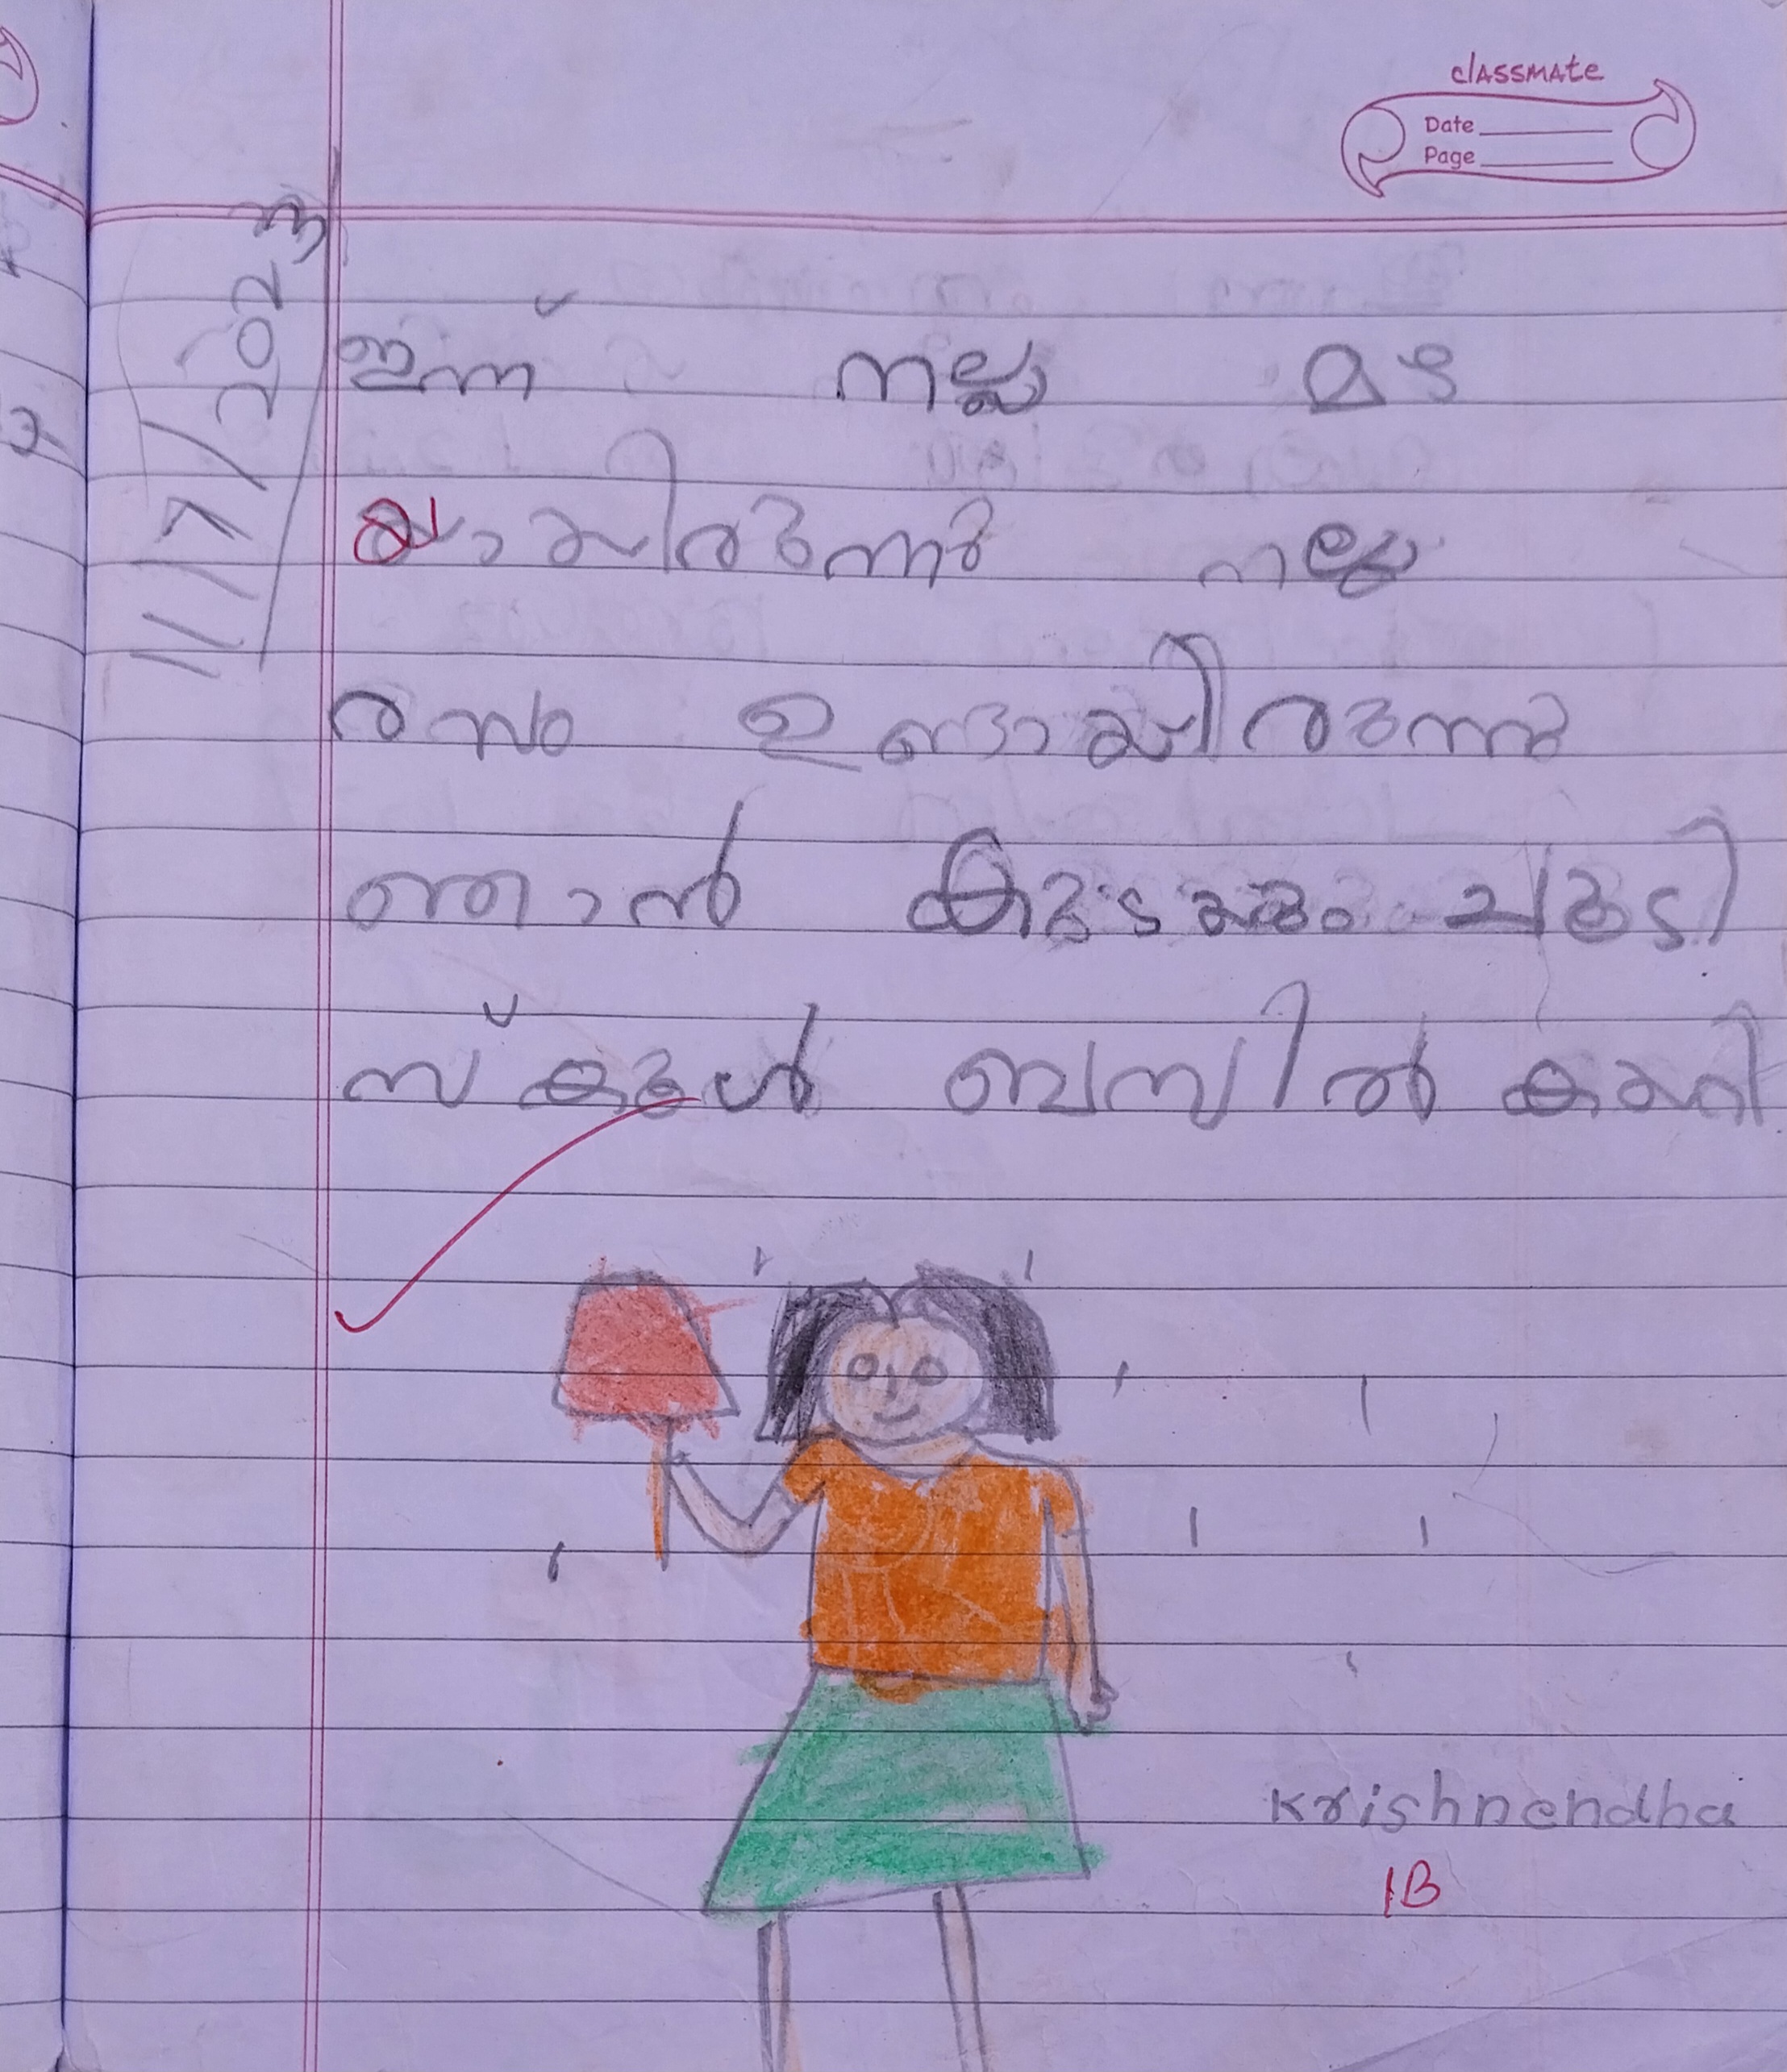 classmate
Date
Page
11/7/2023
ഇന്ന് നല്ല മഴ
യായിരുന്നു നല്ല
രസം ഉണ്ടായിരുന്നു
ഞാൻ കുടയും ചൂടി
സ്കൂൾ ബസിൽ കയറി
Krishnendha
1B